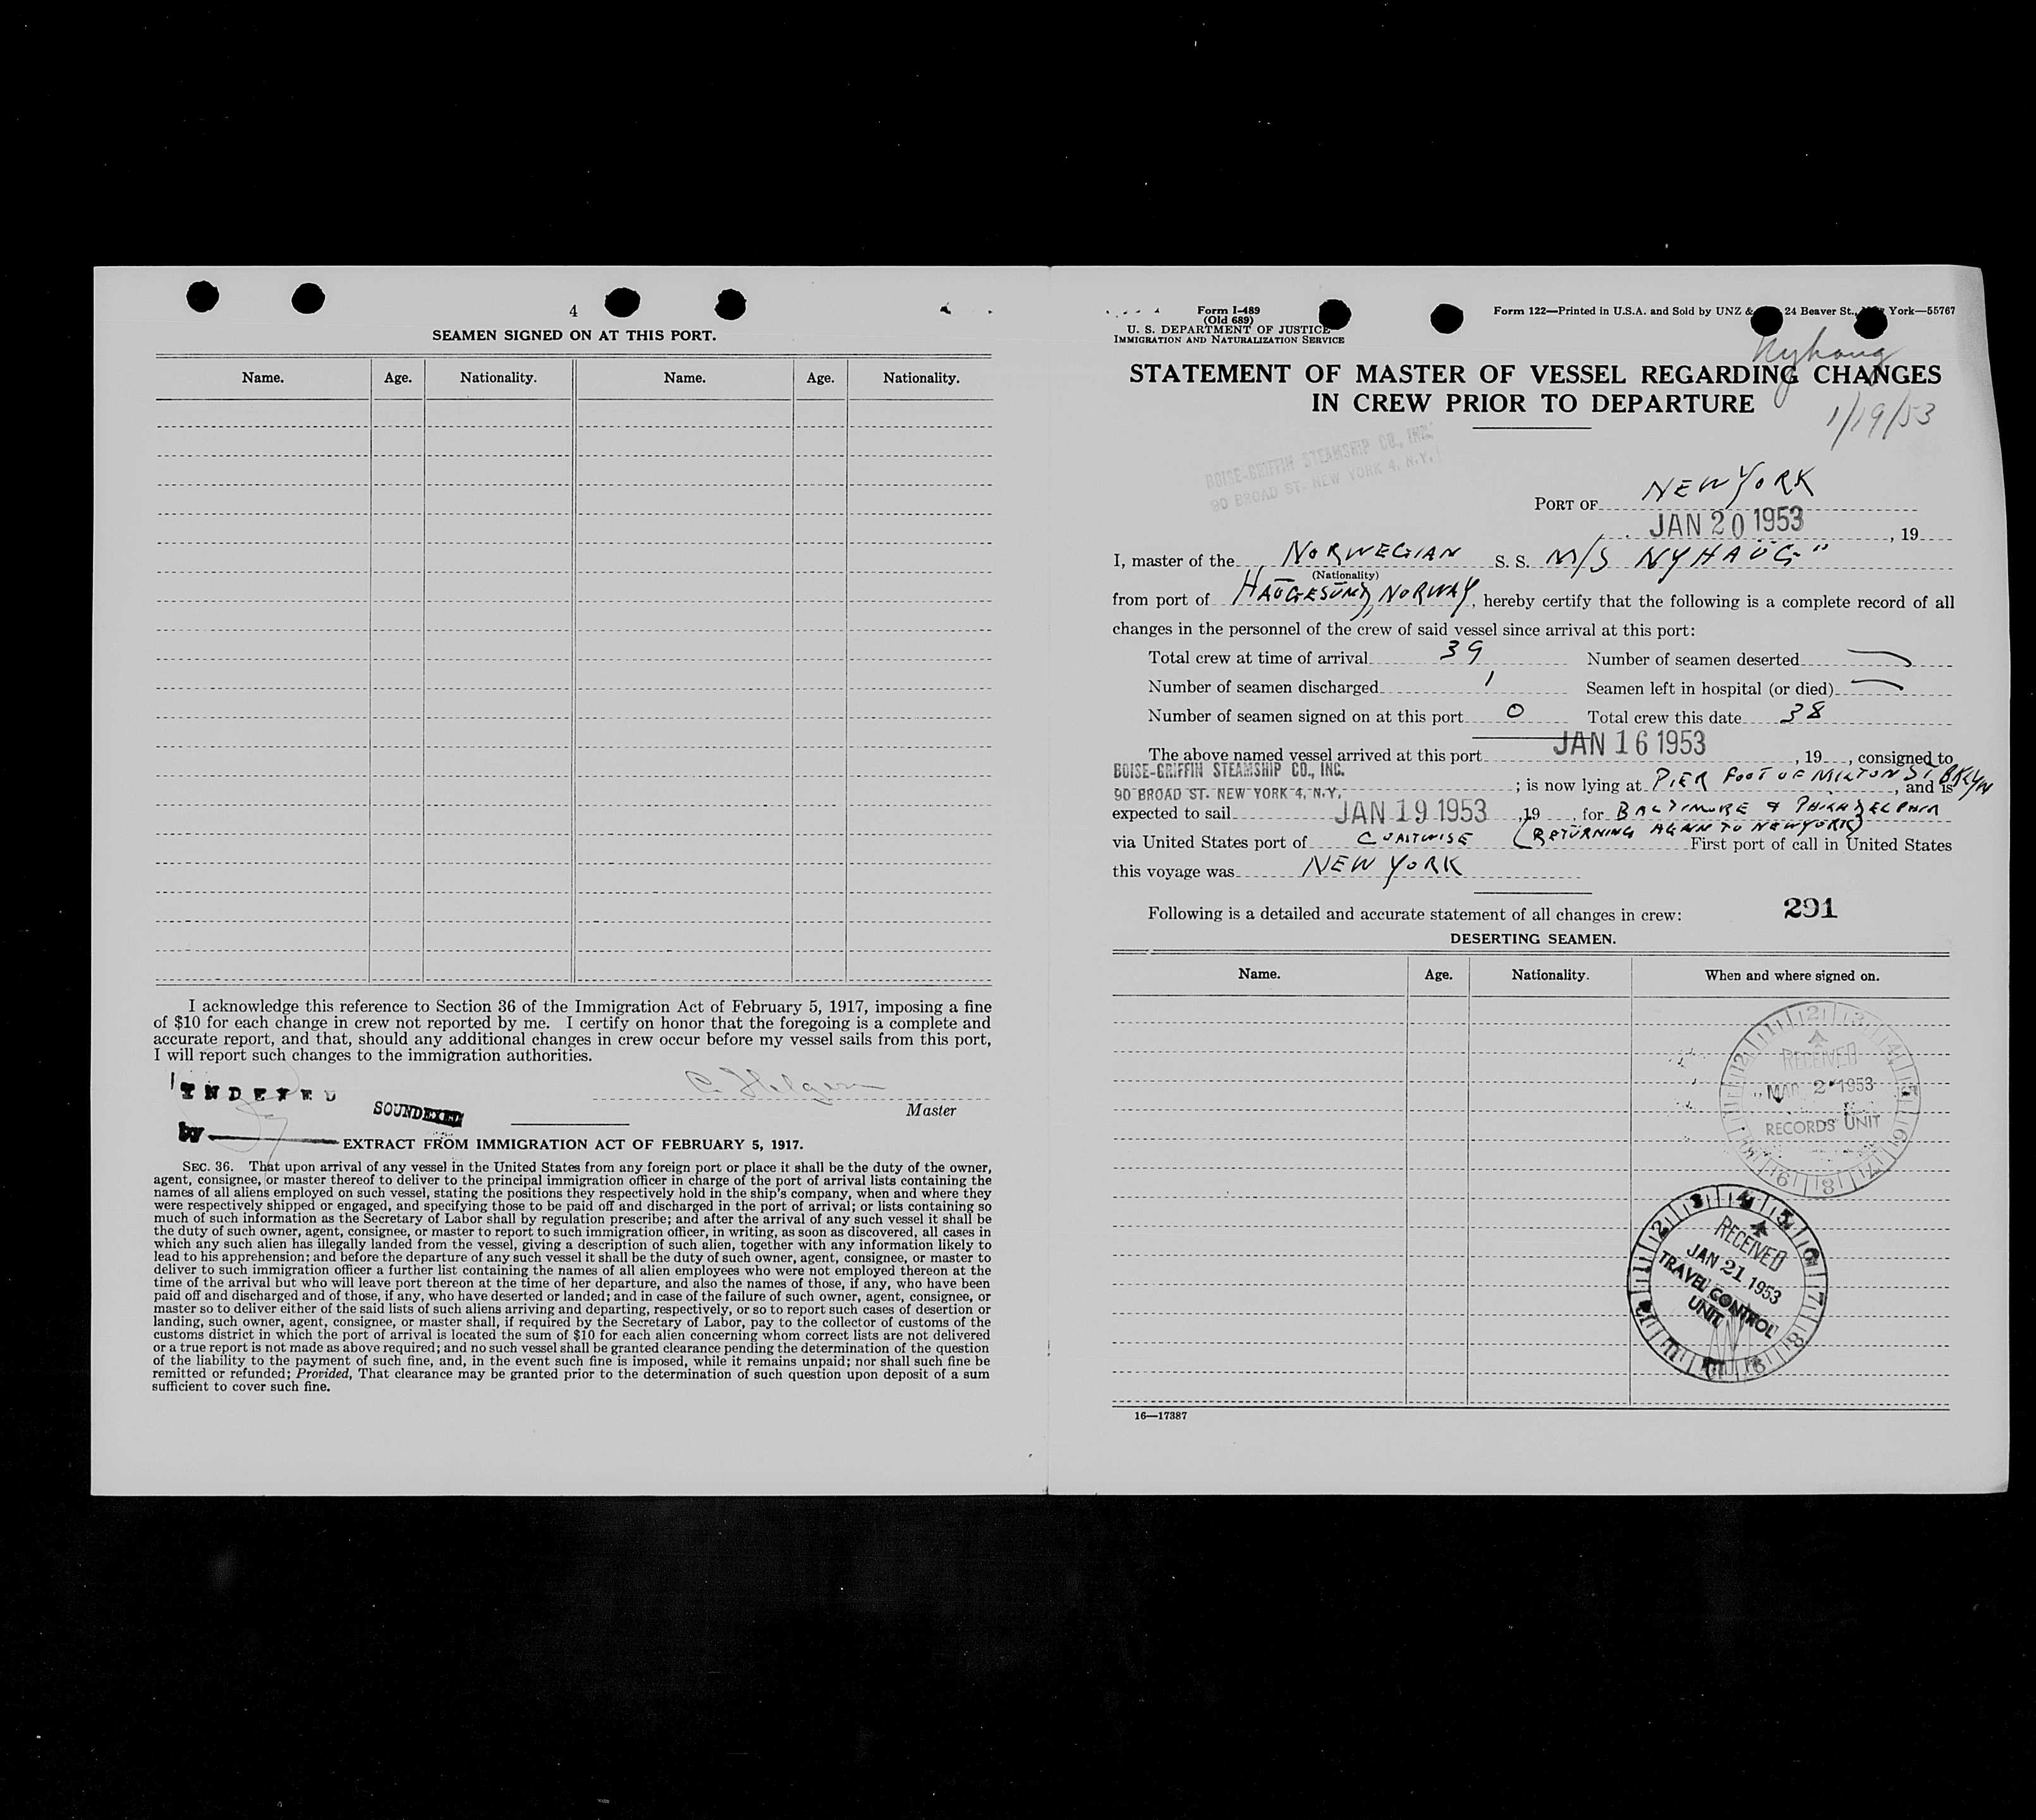 4
SEAMEN SIGNED ON AT THIS PORT.
Name. Age. Nationality. Name. Age. Nationality.
I acknowledge this reference to Section 36 of the Immigration Act of February 5, 1917, imposing a fine
of $10 for each change in crew not reported by me. I certify on honor that the foregoing is a complete and
accurate report, and that, should any additional changes in crew occur before my vessel sails from this port,
I will report such changes to the immigration authorities.
INDEXED
SOUNDEXED
Master
by
EXTRACT FROM IMMIGRATION ACT OF FEBRUARY 5, 1917.
SEC. 36. That upon arrival of any vessel in the United States from any foreign port or place it shall be the duty of the owner,
agent, consignee, or master thereof to deliver to the principal immigration officer in charge of the port of arrival lists containing the
names of all aliens employed on such vessel, stating the positions they respectively hold in the ship's company, when and where they
were respectively shipped or engaged, and specifying those to be paid off and discharged in the port of arrival; or lists containing so
much of such information as the Secretary of Labor shall by regulation prescribe; and after the arrival of any such vessel it shall be
the duty of such owner, agent, consignee, or master to report to such immigration officer, in writing, as soon as discovered, all cases in
which any such alien has illegally landed from the vessel, giving a description of such alien, together with any information likely to
lead to his apprehension; and before the departure of any such vessel it shall be the duty of such owner, agent, consignee, or master to
deliver to such immigration officer a further list containing the names of all alien employees who were not employed thereon at the
time of the arrival but who will leave port thereon at the time of her departure, and also the names of those, if any, who have been
paid off and discharged and of those, if any, who have deserted or landed; and in case of the failure of such owner, agent, consignee, or
master so to deliver either of the said lists of such aliens arriving and departing, respectively, or so to report such cases of desertion or
landing, such owner, agent, consignee, or master shall, if required by the Secretary of Labor, pay to the collector of customs of the
customs district in which the port of arrival is located the sum of $10 for each alien concerning whom correct lists are not delivered
or a true report is not made as above required; and no such vessel shall be granted clearance pending the determination of the question
of the liability to the payment of such fine, and, in the event such fine is imposed, while it remains unpaid; nor shall such fine be
remitted or refunded; Provided, That clearance may be granted prior to the determination of such question upon deposit of a sum
sufficient to cover such fine.
Form I-489
(Old 689)
U. S. DEPARTMENT OF JUSTICE
IMMIGRATION AND NATURALIZATION SERVICE
Form 122—Printed in U.S.A. and Sold by UNZ & 24 Beaver St., York—55767
Nyhaug
STATEMENT OF MASTER OF VESSEL REGARDING CHANGES
IN CREW PRIOR TO DEPARTURE
1/19/53
BOISE-GRIFFIN STEAMSHIP CO., INC.
90 BROAD ST. NEW YORK 4, N.Y.
PORT OF NEW YORK
JAN 20 1953, 19
I, master of the NORWEGIAN S. S. M/S NYHAUG"
(Nationality)
from port of HAUGESUND, NORWAY, hereby certify that the following is a complete record of all
changes in the personnel of the crew of said vessel since arrival at this port:
Total crew at time of arrival 39 Number of seamen deserted
Number of seamen discharged 1 Seamen left in hospital (or died)
Number of seamen signed on at this port 0 Total crew this date 38
The above named vessel arrived at this port JAN 16 1953, 19, consigned to
BOISE-GRIFFIN STEAMSHIP CO., INC.
90 BROAD ST. NEW YORK 4, N.Y. ; is now lying at PIER FOOT OF MILTON ST BKLYN, and is
expected to sail JAN 19 1953, 19, for BALTIMORE & PHILADELPHIA
via United States port of COASTWISE (RETURNING AGAIN TO NEW YORK) First port of call in United States
this voyage was NEW YORK
Following is a detailed and accurate statement of all changes in crew: 291
DESERTING SEAMEN.
Name. Age. Nationality. When and where signed on.
RECEIVED
MAR 2 1953
RECORDS UNIT
RECEIVED
JAN 21 1953
TRAVEL CONTROL
UNIT
16—17387